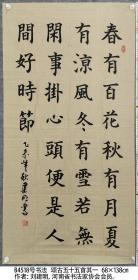 春有百花秋有月夏
有涼風冬有雪若無
閑事掛心頭便是人
間好時節
乙未年秋建明書
B4518号书法 颂古五十五首其一 68×138cm
作者: 刘建明, 河南省书法家协会会员.